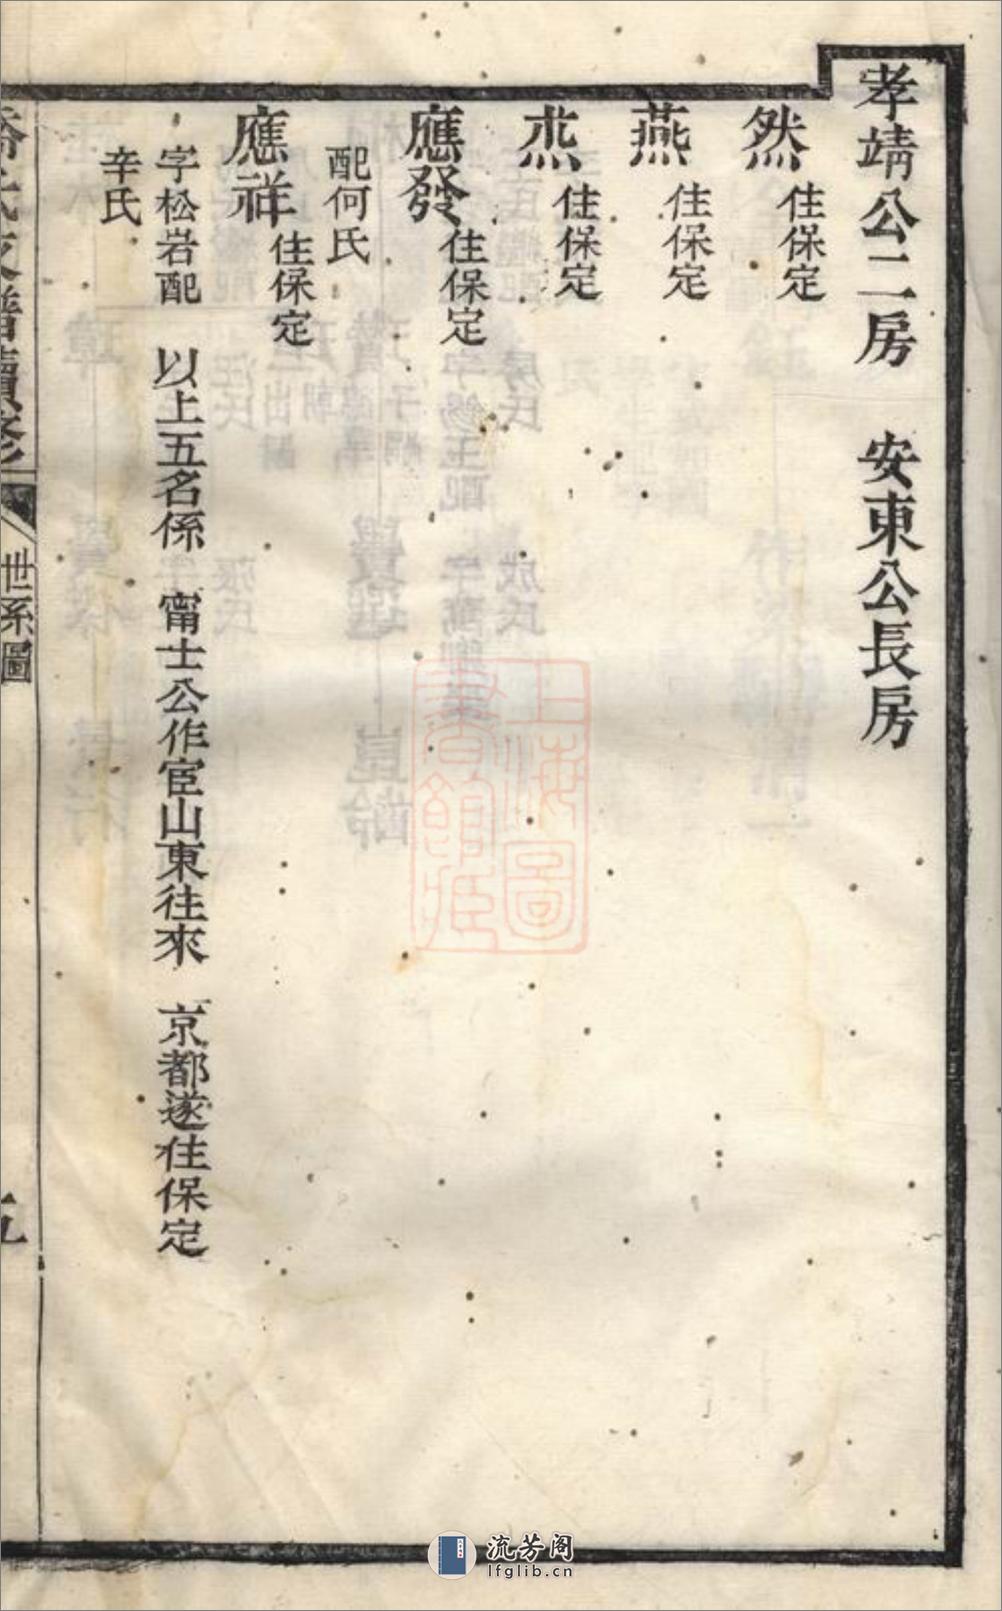 孝靖公二房　安東公長房
然　住保定
燕　住保定
烝　住保定
應發　住保定
配何氏
應祥　住保定
字松岩配
辛氏
以上五名係　甯士公作宦山東往來　京都遂住保定
世系圖
上海圖書館藏
流芳阁
lfglib.cn